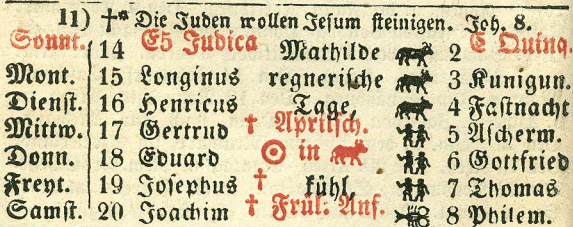 11) †* Die Juden wollen Jesum steinigen. Joh. 8.
Sonnt. 14 E5 Judica Mathilde 2 E Quinq.
Mont. 15 Longinus regnerische 3 Kunigun.
Dienst. 16 Henricus Tage, 4 Fastnacht
Mittw. 17 Gertrud † Aprilsch. 5 Ascherm.
Donn. 18 Eduard ☉ in ♈ 6 Gottfried
Freyt. 19 Josephus † kühl, 7 Thomas
Samst. 20 Joachim † Frül. Anf. 8 Philem.